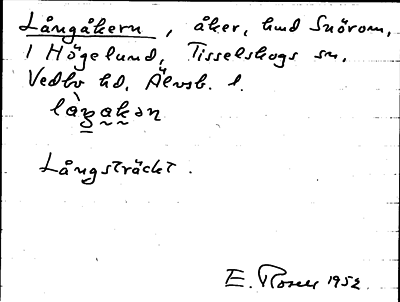 Långåkern, åker, hmd Snörom,
1 Högelund, Tisselskogs sn,
Vedbo hd, Älvsb. l.
Långsträckt.
E. Rosell 1952